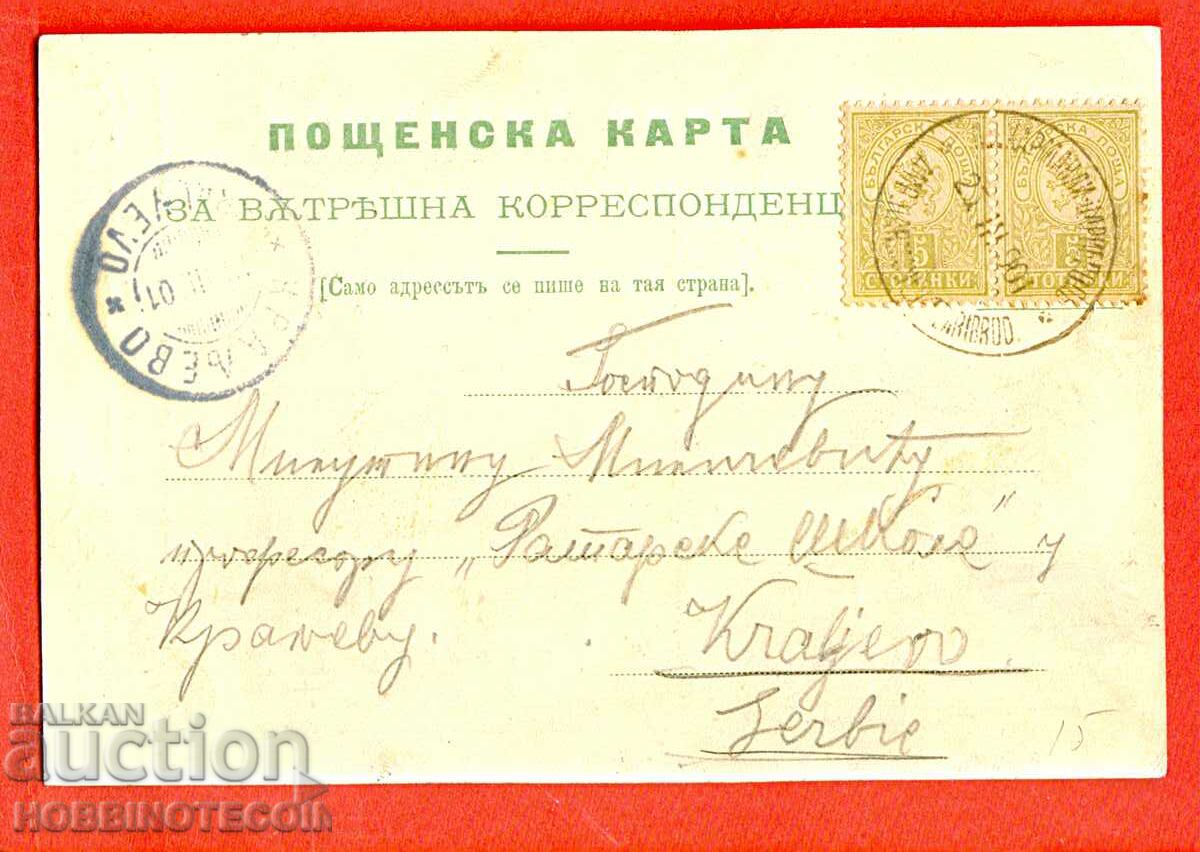 ПОЩЕНСКА КАРТА
ЗА ВѪТРѢШНА КОРРЕСПОНДЕНЦ
[Само адрессътъ се пише на тая страна].
БЪЛГАРСКА ПОЩА
5
СТОТИНКИ
5
СТОТИНКИ
КРАЉЕВО * * 
01
901
ЦАРИБРОД
Господину
Милутину
професору „Ратарске Школе" у
Краљеву.
Kraljevo
Serbie
15
BALKAN
auction
HOBBINOTECOM